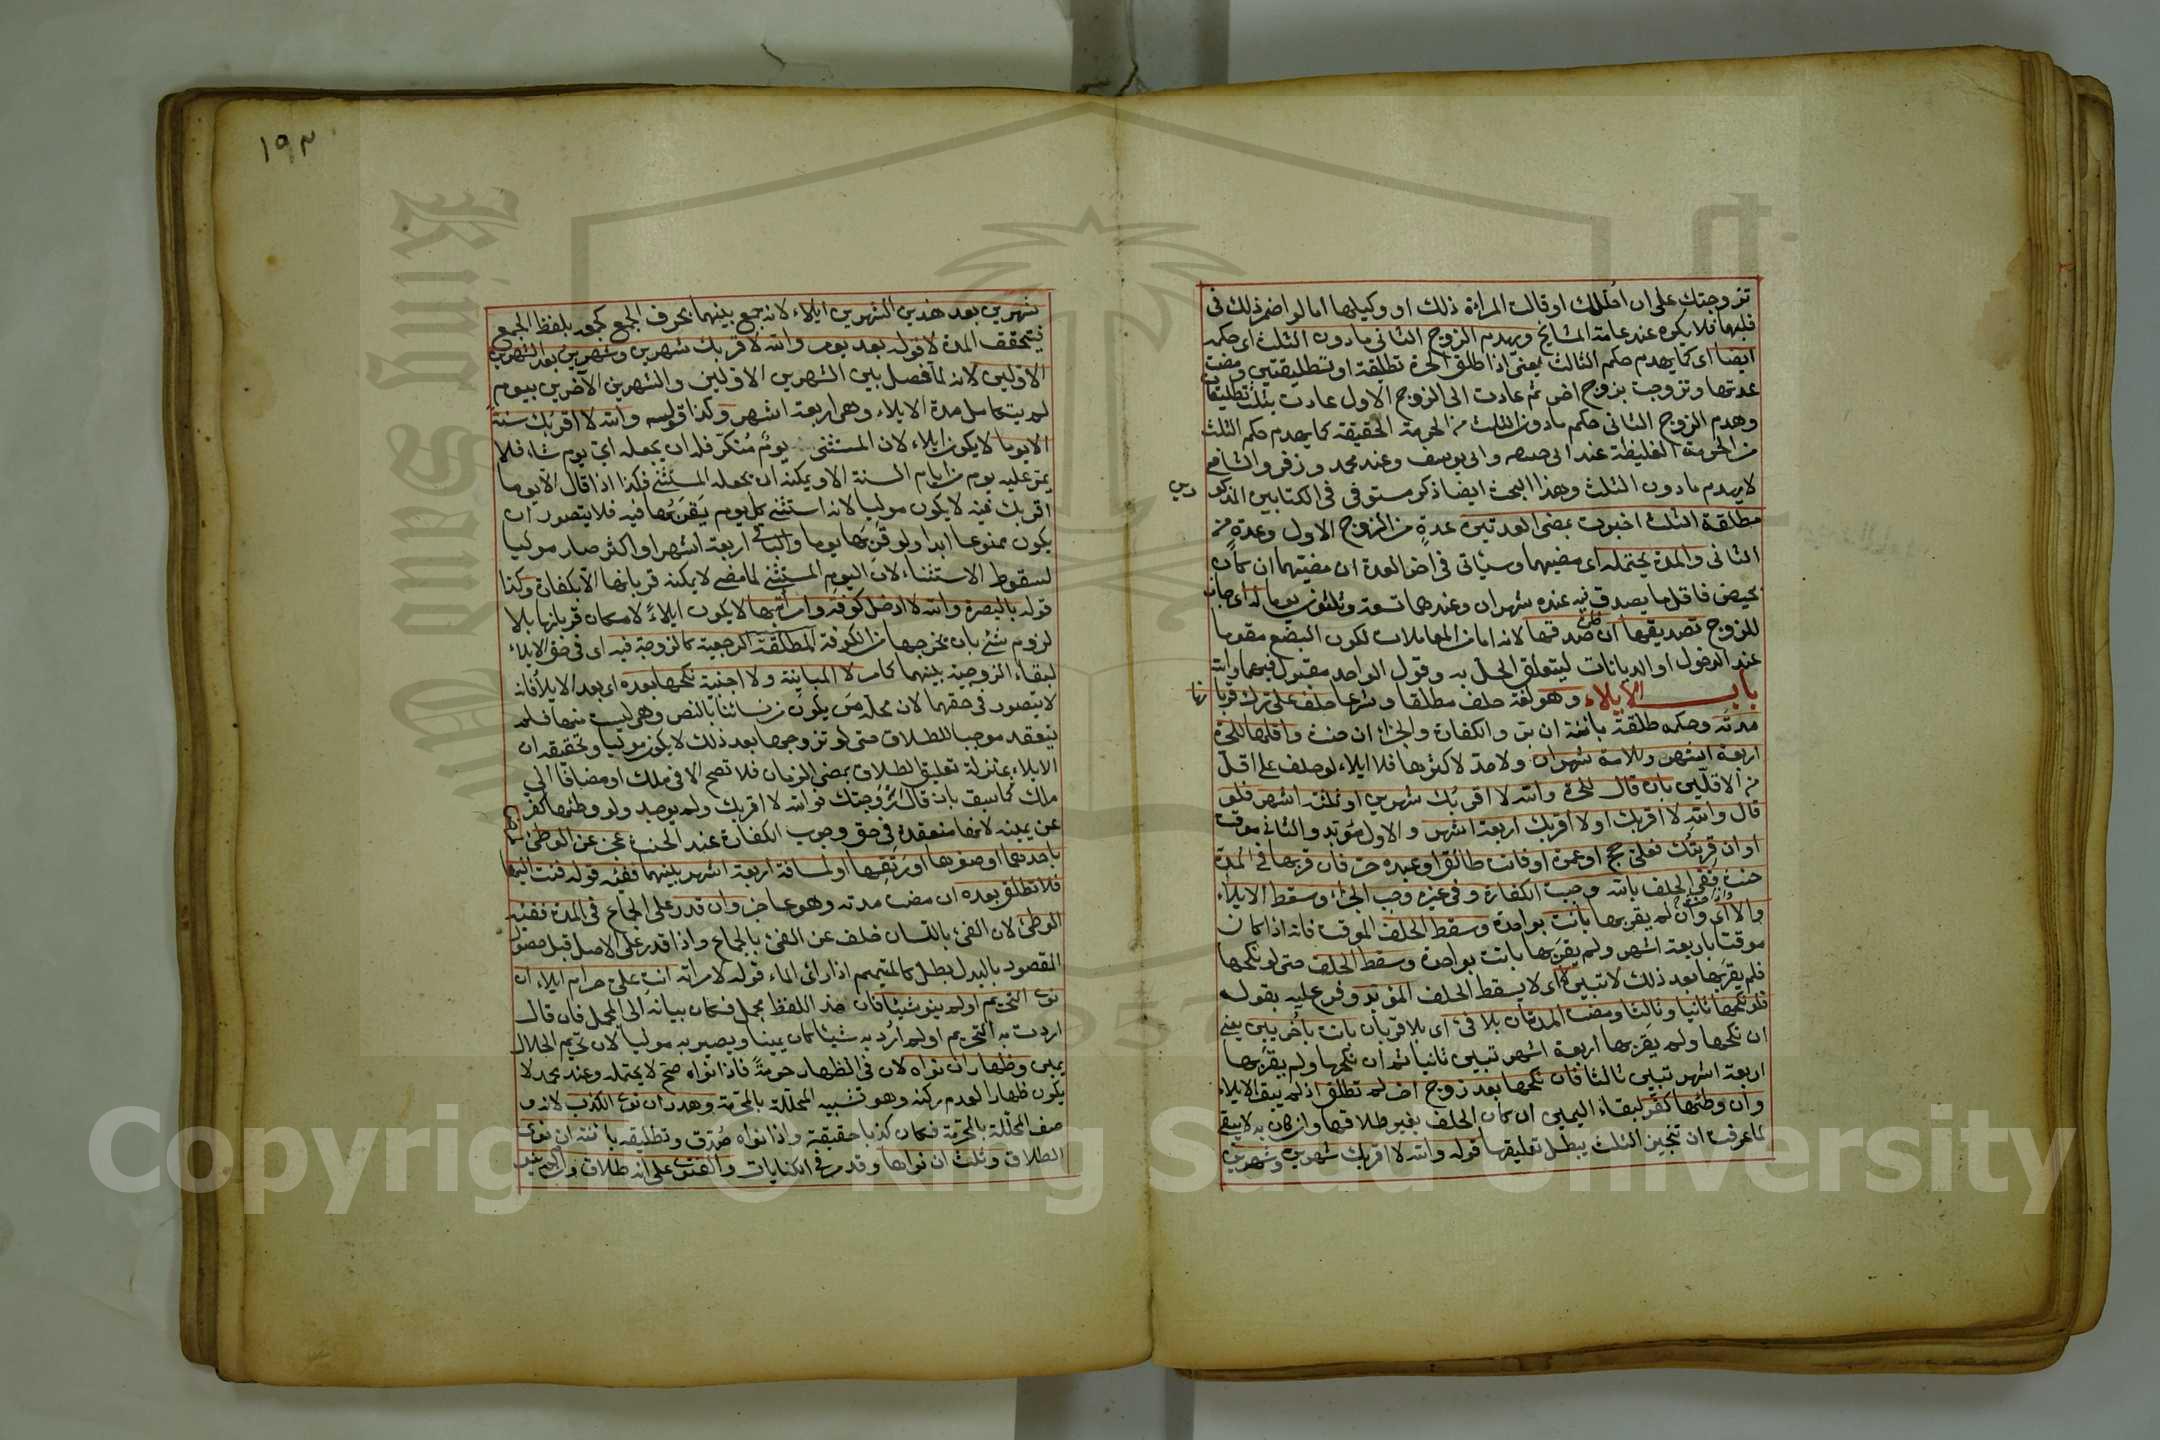 تزوجتك على ان احللك او قالت المراة ذلك او وكيلها اما لو اضمر ذلك فى
قلبها فلا يكره عند عامة المشايخ ويهدم الزوج الثانى مادون الثلث اى حكمه
ايضا اى كما يهدم حكم الثالث يعنى اذا طلق الحرة تطليقة او تطليقتين ومضت
عدتها وتزوجت بزوج اخر ثم عادت الى الزوج الاول عادت بثلث تطليقات
وهدم الزوج الثانى حكم مادون الثلث من الحرمة الخفيفة كما يهدم حكم الثلث
من الحرمة الغليظة عند ابى حنيفه وابى يوسف وعند محمد وزفر والشافعى
لا يهدم مادون الثلث وهذا البحث ايضا ذكر مستوفى فى الكتابين المذكو رين
مطلقة الثلث اخبرت بمضى العدتين عدةٍ من الزوج الاول وعدةٍ من
الثانى والمدة يحتمله اى مضيهما وسياتى فى اخر العدة ان مضيهما ان كان
بحيض فاقل ما يصدق فيه عنده شهران وعندهما تسعة وثلثون يوما له اى جاز
للزوج تصديقها ان ظن صدقها لانه اما من المعاملات لكون البضع مقوما
عند الدخول او الديانات لتعلق الحل به وقول الواحد مقبول فيهما والله
باب الايلاء وهو لغة حلف مطلقا وشرعا حلف على ترك قربا نها
مدته وحكمه طلقة بائنة ان بر والكفارة والجزاء ان حنث واقلها للحرة
اربعة اشهر وللامة شهران ولا حد لاكثرها فلا ايلاء لو حلف على اقل
من الاقلين بان قال للحرة والله لا اقربك شهرين او ثلثة اشهر فلو
قال والله لا اقربك او لا اقربك اربعة اشهر والاول مؤبد والثانى موقت
او ان قربتك فعلى حج او عمرة او فانت طالق او عبده حر فان قربها فى المدة
حنث ففى الحلف بالله وجبت الكفارة وفى غيره وجب الجزاء وسقط الايلاء
والا اى وان لم يقربها بانت بواحدة وسقط الحلف الموقت فانه اذا كان
موقتا باربعة اشهر ولم يقربها بانت بواحدة وسقط الحلف حتى لو نكحها
فلم يقربها بعد ذلك لا تبين لا اى لا يسقط الحلف المؤبد وفرع عليه بقوله
فلو نكحها ثانيا وثالثا ومضت المدتان بلا فئ اى بلا قربان بانت باخريين يعنى
ان نكحها ولم يقربها اربعة اشهر تبين ثانيا ثم ان نكحها ولم يقربها
اربعة اشهر تبين ثالثا فان نكحها بعد زوج اخر لم تطلق اذ لم يبق الايلاء
وان وطئها كفر لبقاء اليمين ان كان الحلف بغير طلاقها وان كان به لا يبقى
لما عرفت ان تنجيز الثلث يبطل تعليقها قوله والله لا اقربك شهرين وشهرين
١٩٣
شهرين بعد هذين الشهرين ايلاء لانه جمع بينهما بحرف الجمع كجمعه بلفظ الجمع
فيتحقق المدة لا قوله بعد يوم والله لا اقربك شهرين وشهرين بعد الشهرين
الاولين لانه لما فصل بين الشهرين الاولين والشهرين الآخرين بيوم
لم يتكامل مدة الايلاء وهى اربعة اشهر وكذا قوله والله لا اقربك سنة
الا يوما لا يكون ايلاء لان المستثنى يومٌ مُنكّر فله ان يجعله اىّ يوم شاء فلا
يمر عليه يوم من ايام السنة الا ويمكنه ان يجعله المستثنى فكذا اذا قال الا يوما
اقربك فيه لا يكون موليا لانه استثنى كل يوم يَقرَبُها فيه فلا يتصور ان
يكون ممنوعا ابدا ولو قربها يوما والباقى اربعة اشهر او اكثر صار موليا
لسقوط الاستثناء لان اليوم المستثنى لما مضى لا يمكنه قربانها الا بكفارة وكذا
قوله بالبصرة والله لا ادخل كوفة وامرأته بها لا يكون ايلاءً لامكان قربانها بلا
لزوم شئ بان يخرجها من الكوفة المطلقة الرجعية كالزوجة فيه اى فى حق الايلاء
لبقاء الزوجية بينهما كما مر لا المباينة ولا اجنبية نكحها بعده اى بعد الايلاء فانه
لا يتصور فى حقهما لان محله مَن يكون من نسائنا بالنص وهى ليست منها فلم
ينعقد موجبا للطلاق حتى لو تزوجها بعد ذلك لا يكون موليا وتحقيقه ان
الايلاء بمنزلة تعليق الطلاق بمضى الزمان فلا تصح الا فى ملك او مضافا الى
ملك كما سبق بان قال تزوجتك فوالله لا اقربك ولم يوجد ولو وطئها كفر
عن يمينه لانها منعقدة فى حق وجوب الكفارة عند الحنث عجز عن الوطئ
باحدهما او صغرها او رتقها او لمسافة اربعة اشهر بينهما ففيئه قوله فئت اليها
فلا تطلق بعده ان مضت مدته وهو عاجز وان قدر على الجماع فى المدة ففيئه
الوطئ لان الفئ باللسان خلف عن الفئ بالجماع واذا قدر على الاصل قبل حصول
المقصود بالبدل بطل كالمتيمم اذا رأى الماء قوله لامرأته انت على حرام ايلاء ان
نوى التحريم او لم ينو شيئا فان هذا اللفظ مجمل فكان بيانه الى المجمل فان قال
اردت به التحريم او لم ارد به شيئا كان يمينا ويصير به موليا لان تحريم الحلال
يمين وظهار ان نواه لان فى الظهار حرمةً فاذا نواه صح لا يحتمله وعند محمد لا
يكون ظهارا لعدم ركنه وهو تشبيه المحللة بالمحرمة وهدر ان نوى الكذب لانه و
صف المحللة بالمحرمة فكان كذبا حقيقة واذا نواه صُدّق وتطليقه بائنة ان نوى
الطلاق وثلث ان نواها وقد مر فى الكنايات والفتوى على انه طلاق وان لم ينو